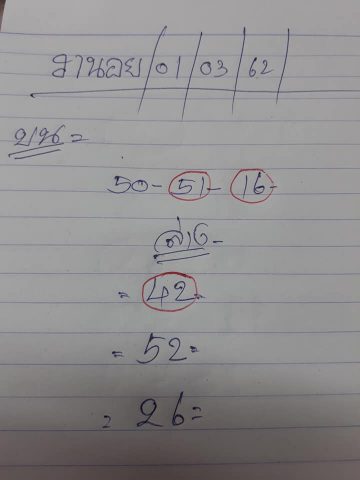 ฮานอย/01/03/62/
บน=
50-51-16-
ล่าง-
=42=
=52=
=26=